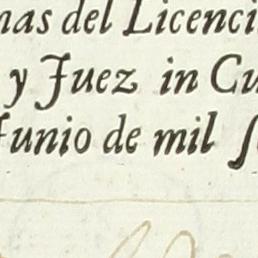 nas del Licenci
y Juez in Cu
Junio de mil ſ